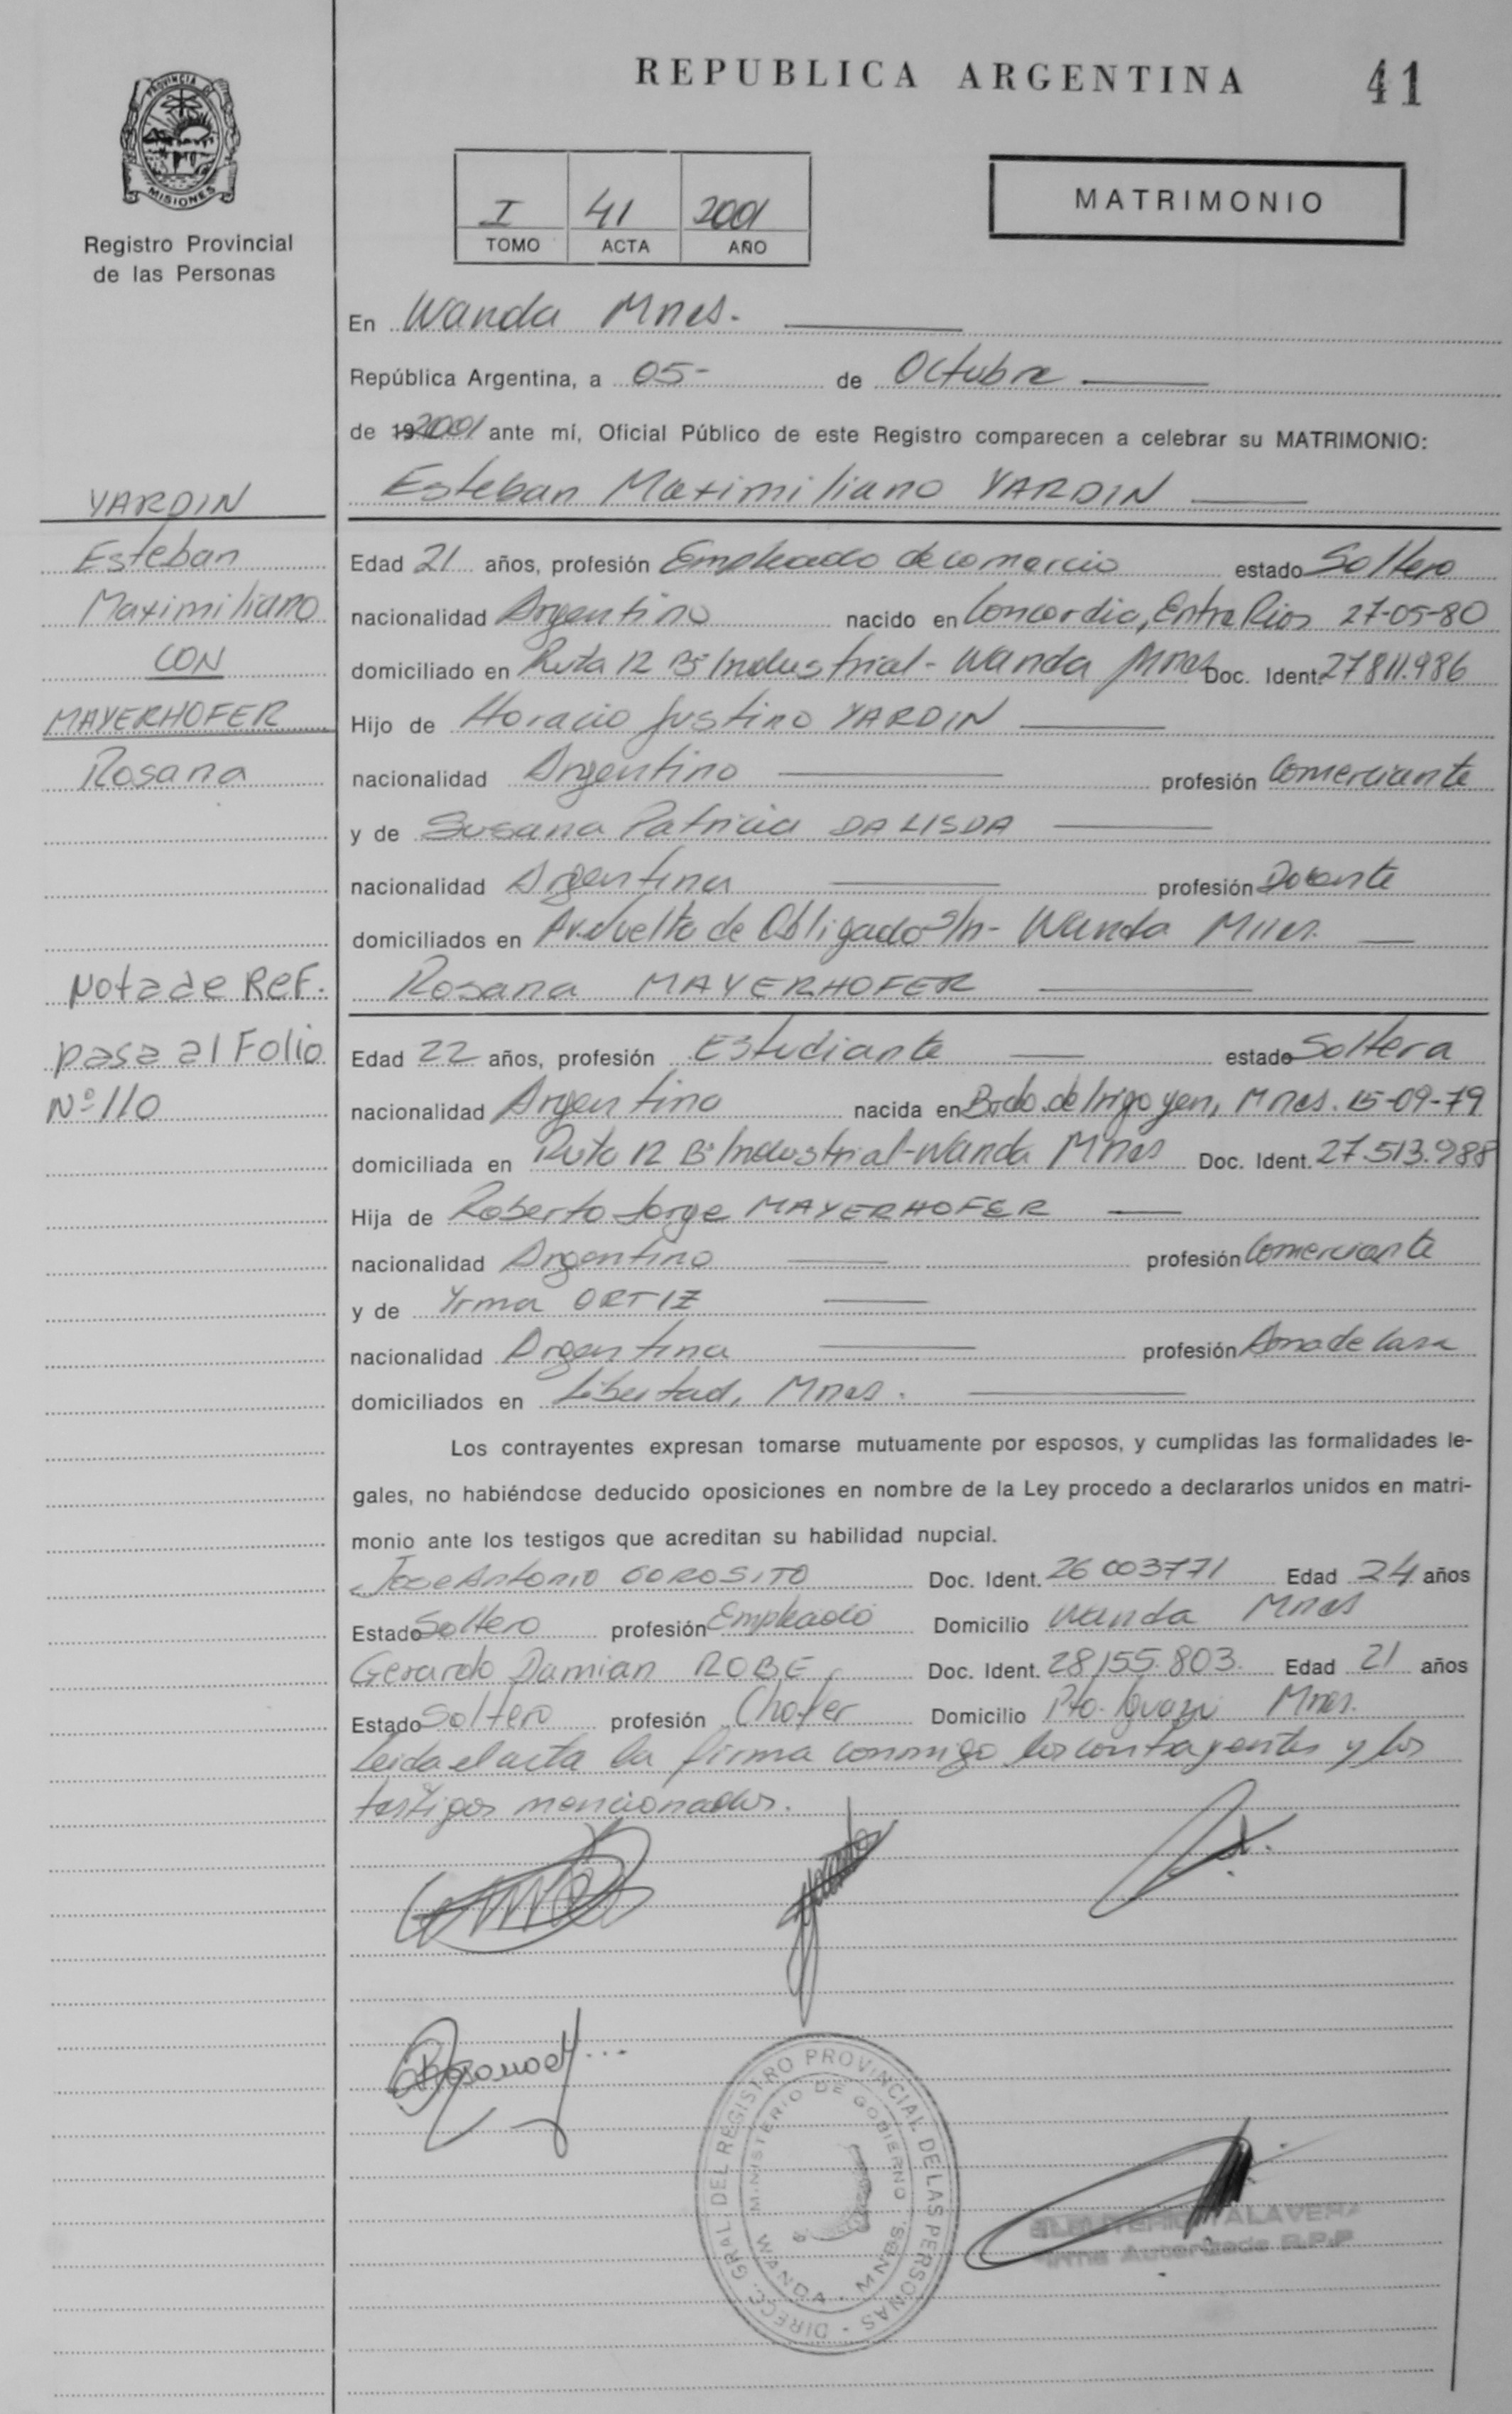 REPUBLICA ARGENTINA
41
PROVINCIA
MISIONES
Registro Provincial
de las Personas
I 41 2001
TOMO ACTA AÑO
MATRIMONIO
En Wanda Mnes.
República Argentina, a 05- de Octubre
de 192001 ante mí, Oficial Público de este Registro comparecen a celebrar su MATRIMONIO:
Esteban Maximiliano YARDIN
YARDIN
Esteban
Maximiliano
CON
MAYERHOFER
Rosana
Nota de Ref.
pasa al Folio
Nº 110
Edad 21 años, profesión Empleado de comercio estado Soltero
nacionalidad Argentino nacido en Concordia, Entre Rios 27-05-80
domiciliado en Ruta 12 Bº Industrial - Wanda Mnes Doc. Ident. 27811.986
Hijo de Horacio Justino YARDIN
nacionalidad Argentino profesión Comerciante
y de Susana Patricia DALISDA
nacionalidad Argentina profesión Docente
domiciliados en Av. Vuelta de Obligado s/n - Wanda Mnes.
Rosana MAYERHOFER
Edad 22 años, profesión Estudiante estado Soltera
nacionalidad Argentina nacida en Bdo. de Irigoyen, Mnes. 15-09-79
domiciliada en Ruta 12 Bº Industrial - Wanda Mnes Doc. Ident. 27.513.988
Hija de Roberto Jorge MAYERHOFER
nacionalidad Argentino profesión Comerciante
y de Yrma ORTIZ
nacionalidad Argentina profesión Ama de Casa
domiciliados en Libertad, Mnes.
Los contrayentes expresan tomarse mutuamente por esposos, y cumplidas las formalidades le-
gales, no habiéndose deducido oposiciones en nombre de la Ley procedo a declararlos unidos en matri-
monio ante los testigos que acreditan su habilidad nupcial.
Jose Antonio GOROSITO Doc. Ident. 26 003771 Edad 24 años
Estado Soltero profesión Empleado Domicilio Wanda Mnes
Gerardo Damian ROBE Doc. Ident. 28155.803. Edad 21 años
Estado Soltero profesión Chofer Domicilio Pto. Iguazu Mnes.
Leida el acta la firma conmigo los contrayentes y los
testigos mencionados.
DIRECC. GRAL. DEL REGISTRO PROVINCIAL DE LAS PERSONAS
MINISTERIO DE GOBIERNO
WANDA - MNES.
TALAVERA
Firma Autorizada R.P.P.